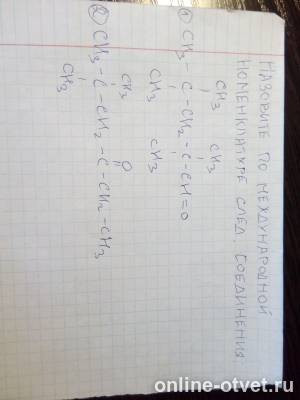 НАЗОВИТЕ ПО МЕЖДУНАРОДНОЙ
НОМЕНКЛАТУРЕ СЛЕД. СОЕДИНЕНИЯ
CH3 CH3
1 CH3 - C - CH2 - C - CH=O
CH3 CH3
CH3 O
2 CH3 - C - CH2 - C - CH2 - CH3
CH3
online-otvet.ru